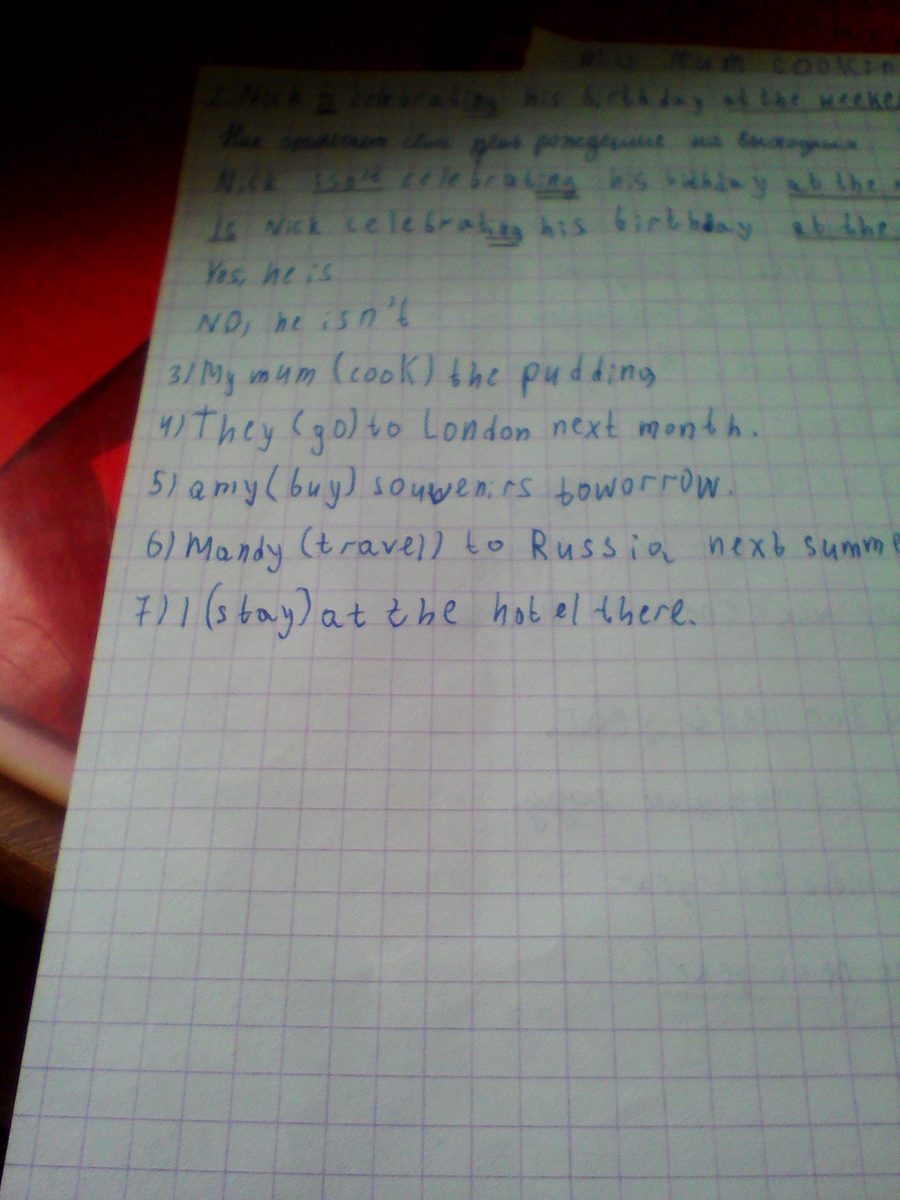 mum cookin
2. Nick is celebrating his birthday at the weeke
Ник свой день рождение на выходных
Nick isn't celebrating his bithday at the
Is Nick celebrating his birthday at the
Yes, he is
NO, he isn't
3) My mum (cook) the pudding
4) They (go) to London next month.
5) amy (buy) souvenirs toworrow.
6) Mandy (travel) to Russia next summe
7) I (stay) at the hotel there.